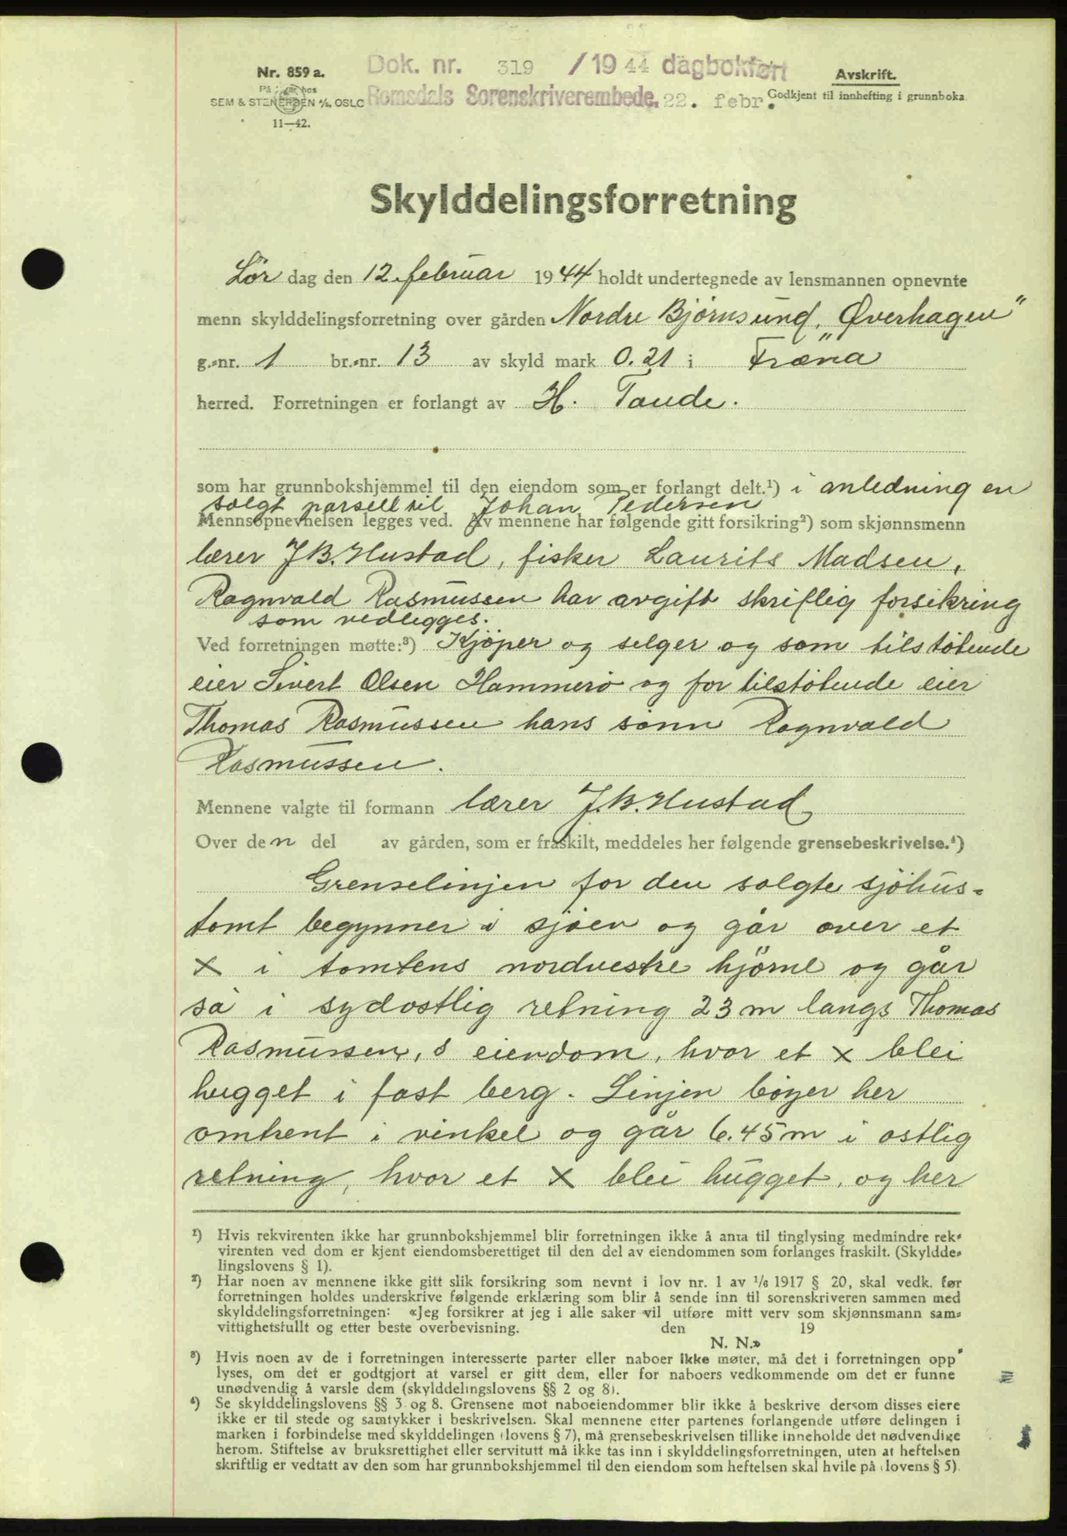 Nr. 859 a.
På lager hos
SEM & STENERSEN A/S, OSLO
11—42.
Dok. nr. 319 /19 44 dagbokført
Romsdals Sorenskriverembede, 22. febr.
Avskrift.
Godkjent til innhefting i grunnboka
Skylddelingsforretning
Lør dag den 12. februar 19 44 holdt undertegnede av lensmannen opnevnte
menn skylddelingsforretning over gården Nordre Bjørnsund, "Øverhagen"
g.-nr. 1 br.-nr. 13 av skyld mark 0.21 i Fræna
herred. Forretningen er forlangt av H. Taude.
som har grunnbokshjemmel til den eiendom som er forlangt delt.¹) i anledning en
solgt parsell til Johan Pedersen
Mennsopnevnelsen legges ved. Av mennene har følgende gitt forsikring²) som skjønnsmenn
lærer J.B. Hustad, fisker Laurits Madsen,
Ragnvald Rasmussen har avgift skriflig forsikring
som vedlegges.
Ved forretningen møtte:³) Kjøper og selger og som tilstøtende
eier Sivert Olsen Hammerø og for tilstøtende eier
Thomas Rasmussen hans sønn Ragnvald
Rasmussen.
Mennene valgte til formann lærer J.B. Hustad
Over den del av gården, som er fraskilt, meddeles her følgende grensebeskrivelse.⁴)
Grenselinjen for den solgte sjøhus-
tomt begynner i sjøen og går over et
X i tomtens nordvestre hjørne og går
så i sydostlig retning 23 m langs Thomas
Rasmussen, s eiendom, hvor et x blei
hugget i fast berg. Linjen bøyer her
omtrent i vinkel og går 6.45 m i ostlig
retning, hvor et X blei hugget, og her
¹) Hvis rekvirenten ikke har grunnbokshjemmel blir forretningen ikke å anta til tinglysing medmindre rek-
virenten ved dom er kjent eiendomsberettiget til den del av eiendommen som forlanges fraskilt. (Skyldde-
lingslovens § 1).
²) Har noen av mennene ikke gitt slik forsikring som nevnt i lov nr. 1 av 1/6 1917 § 20, skal vedk. før
forretningen holdes underskrive følgende erklæring som blir å sende inn til sorenskriveren sammen med
skylddelingsforretningen: «Jeg forsikrer at jeg i alle saker vil utføre mitt verv som skjønnsmann sam-
vittighetsfullt og etter beste overbevisning. den 19
N. N.»
³) Hvis noen av de i forretningen interesserte parter eller naboer ikke møter, må det i forretningen opp
lyses, om det er godtgjort at varsel er gitt dem, eller for naboers vedkommende om det er funne
unødvendig å varsle dem (skylddelingslovens §§ 2 og 8).
⁴) Se skylddelingslovens §§ 3 og 8. Grensene mot naboeiendommer blir ikke å beskrive dersom disses eiere
ikke er til stede og samtykker i beskrivelsen. Skal mennene etter partenes forlangende utføre delingen i
marken i forbindelse med skylddelingen (lovens § 7), må grensebeskrivelsen tillike inneholde det nødvendige
herom. Stiftelse av bruksrettighet eller servitutt må ikke tas inn i skylddelingsforretningen, uten at heftelsen
skriftlig er vedtatt av den som har grunnbokshjemmel til den eiendom som heftelsen skal hvile på (lovens § 5).